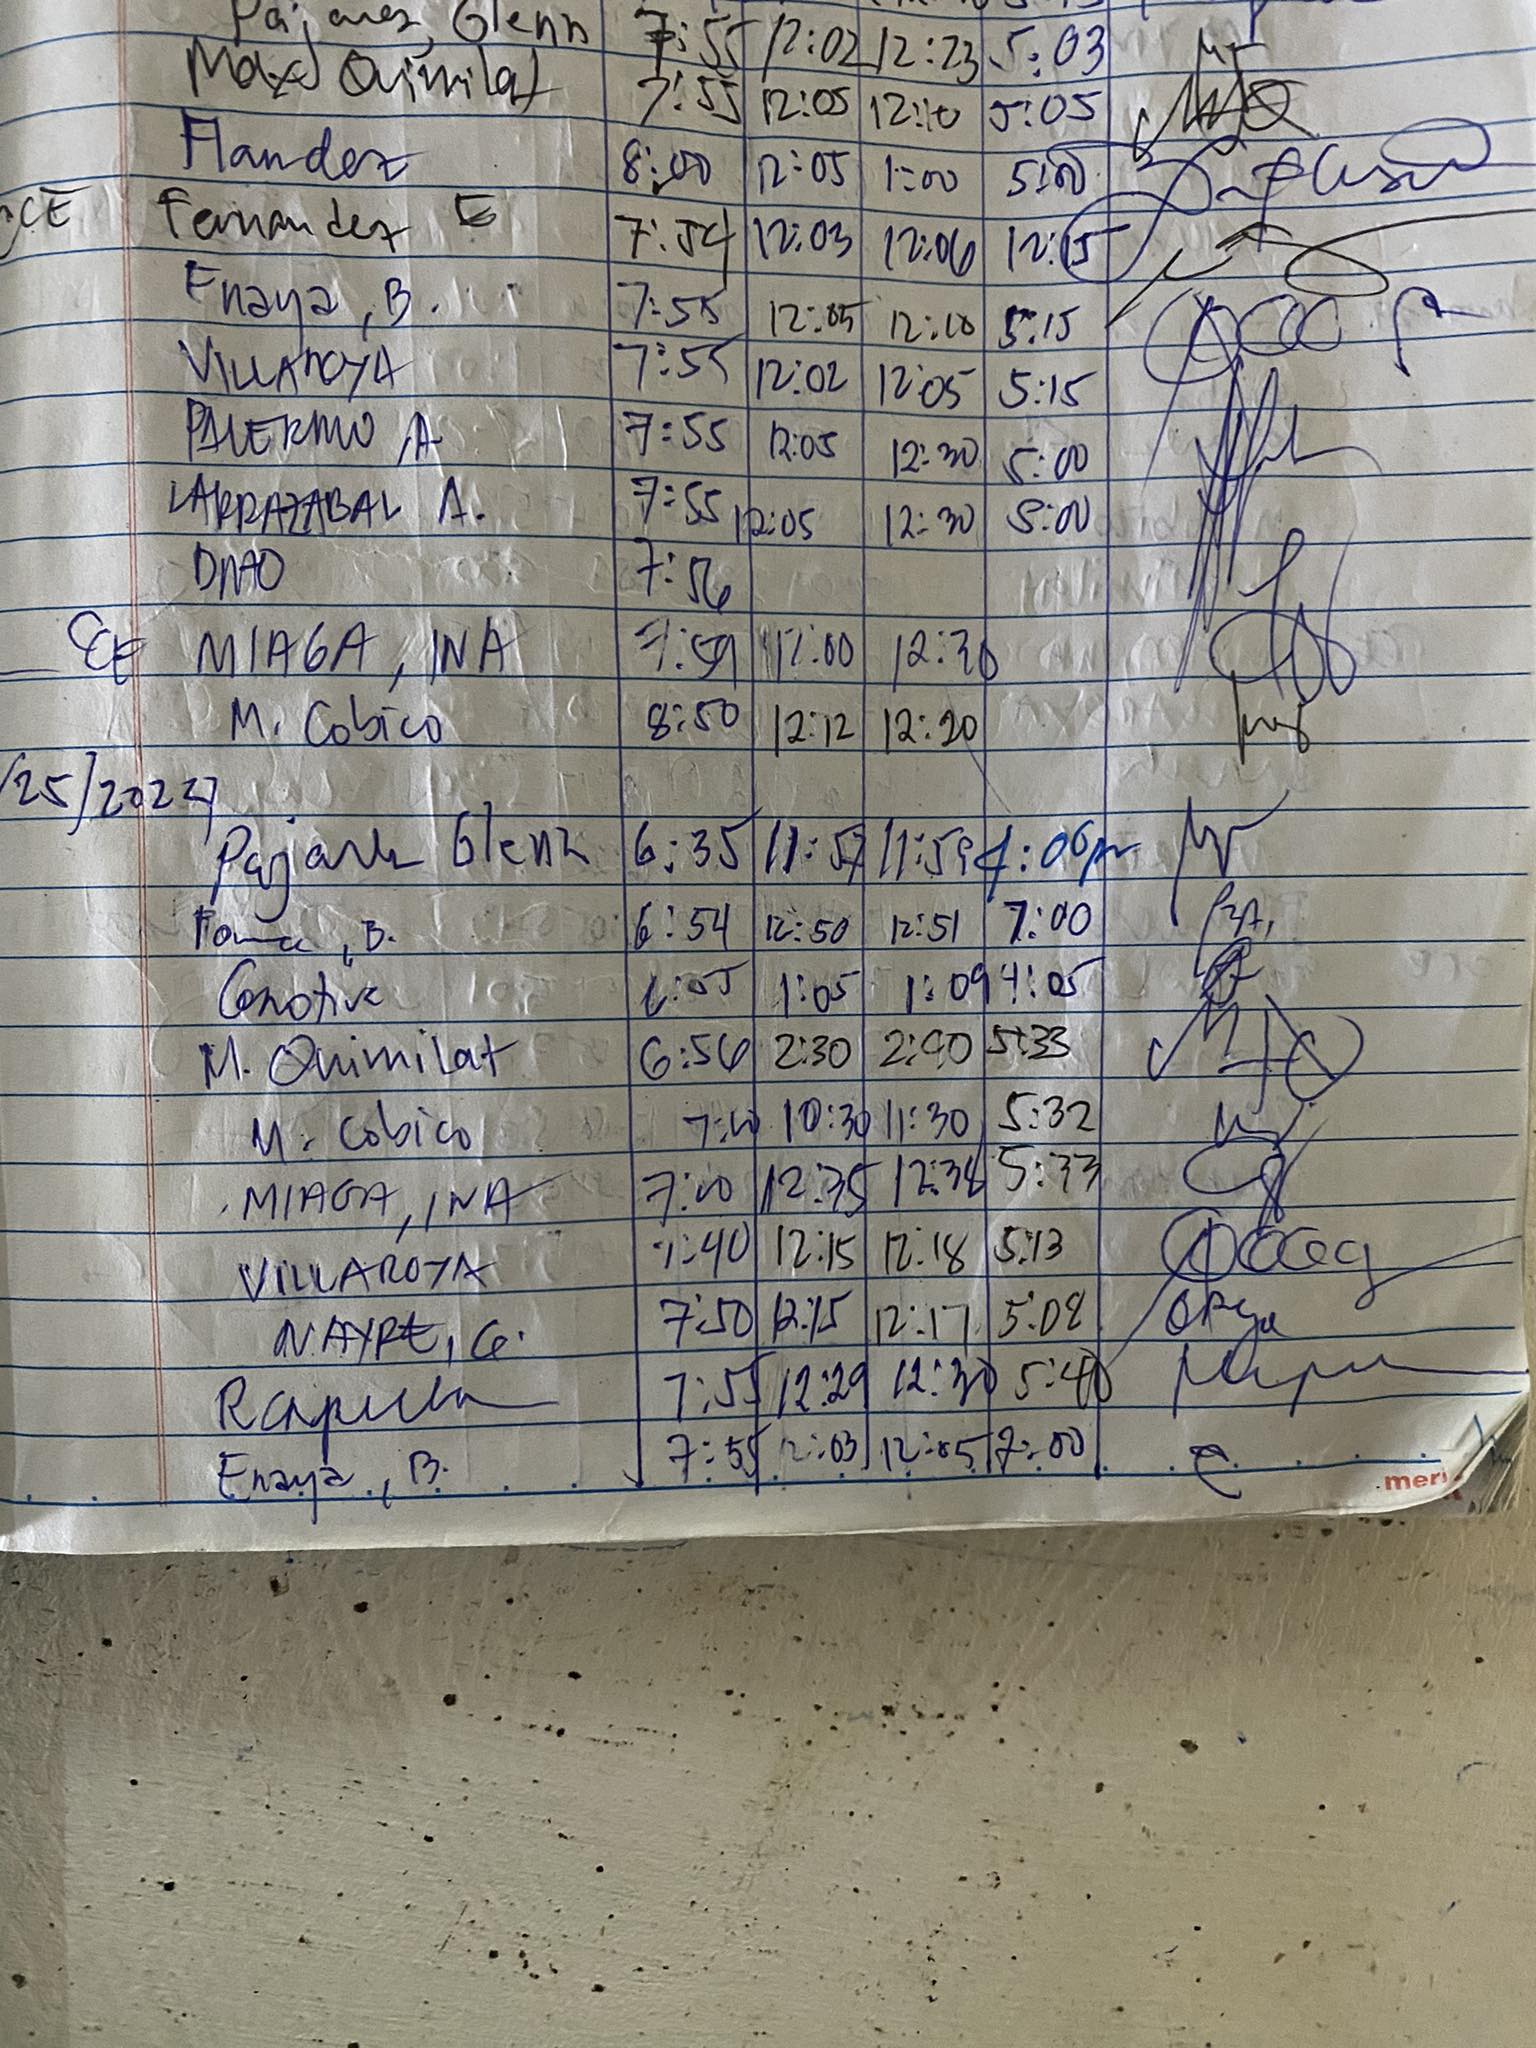 Pajares, Glenn 7:55 12:02 12:23 5:03
Max Quimilat 7:55 12:05 12:10 5:05
Flandez 8:00 12:05 1:00 5:00
CE Fernandez E 7:54 12:03 12:06 12:15
Enaya, B. 7:55 12:05 12:10 5:15
VILLAROYA 7:55 12:02 12:05 5:15
PALERMO, A. 7:55 12:05 12:30 5:00
LARRAZABAL A. 7:55 12:05 12:30 5:00
7:56
CE MIAGA, INA 7:59 12:00 12:30
M. Cobico 8:50 12:12 12:20
/25/2022
Glenn 6:35 11:57 11:59 4:06pm
B. 6:54 12:50 12:51 7:00
1:05 1:09 4:05
M. Quimilat 6:56 2:30 2:40 5:33
M. Cobico 7:00 10:30 11:30 5:32
MIAGA, INA 7:00 12:35 12:38 5:33
VILLAROYA 7:40 12:15 12:18 5:13
NAYRE, G. 7:50 12:15 12:17 5:08
7:55 12:29 12:30 5:40
Enaya, B. 7:55 12:03 12:05 7:00
merit